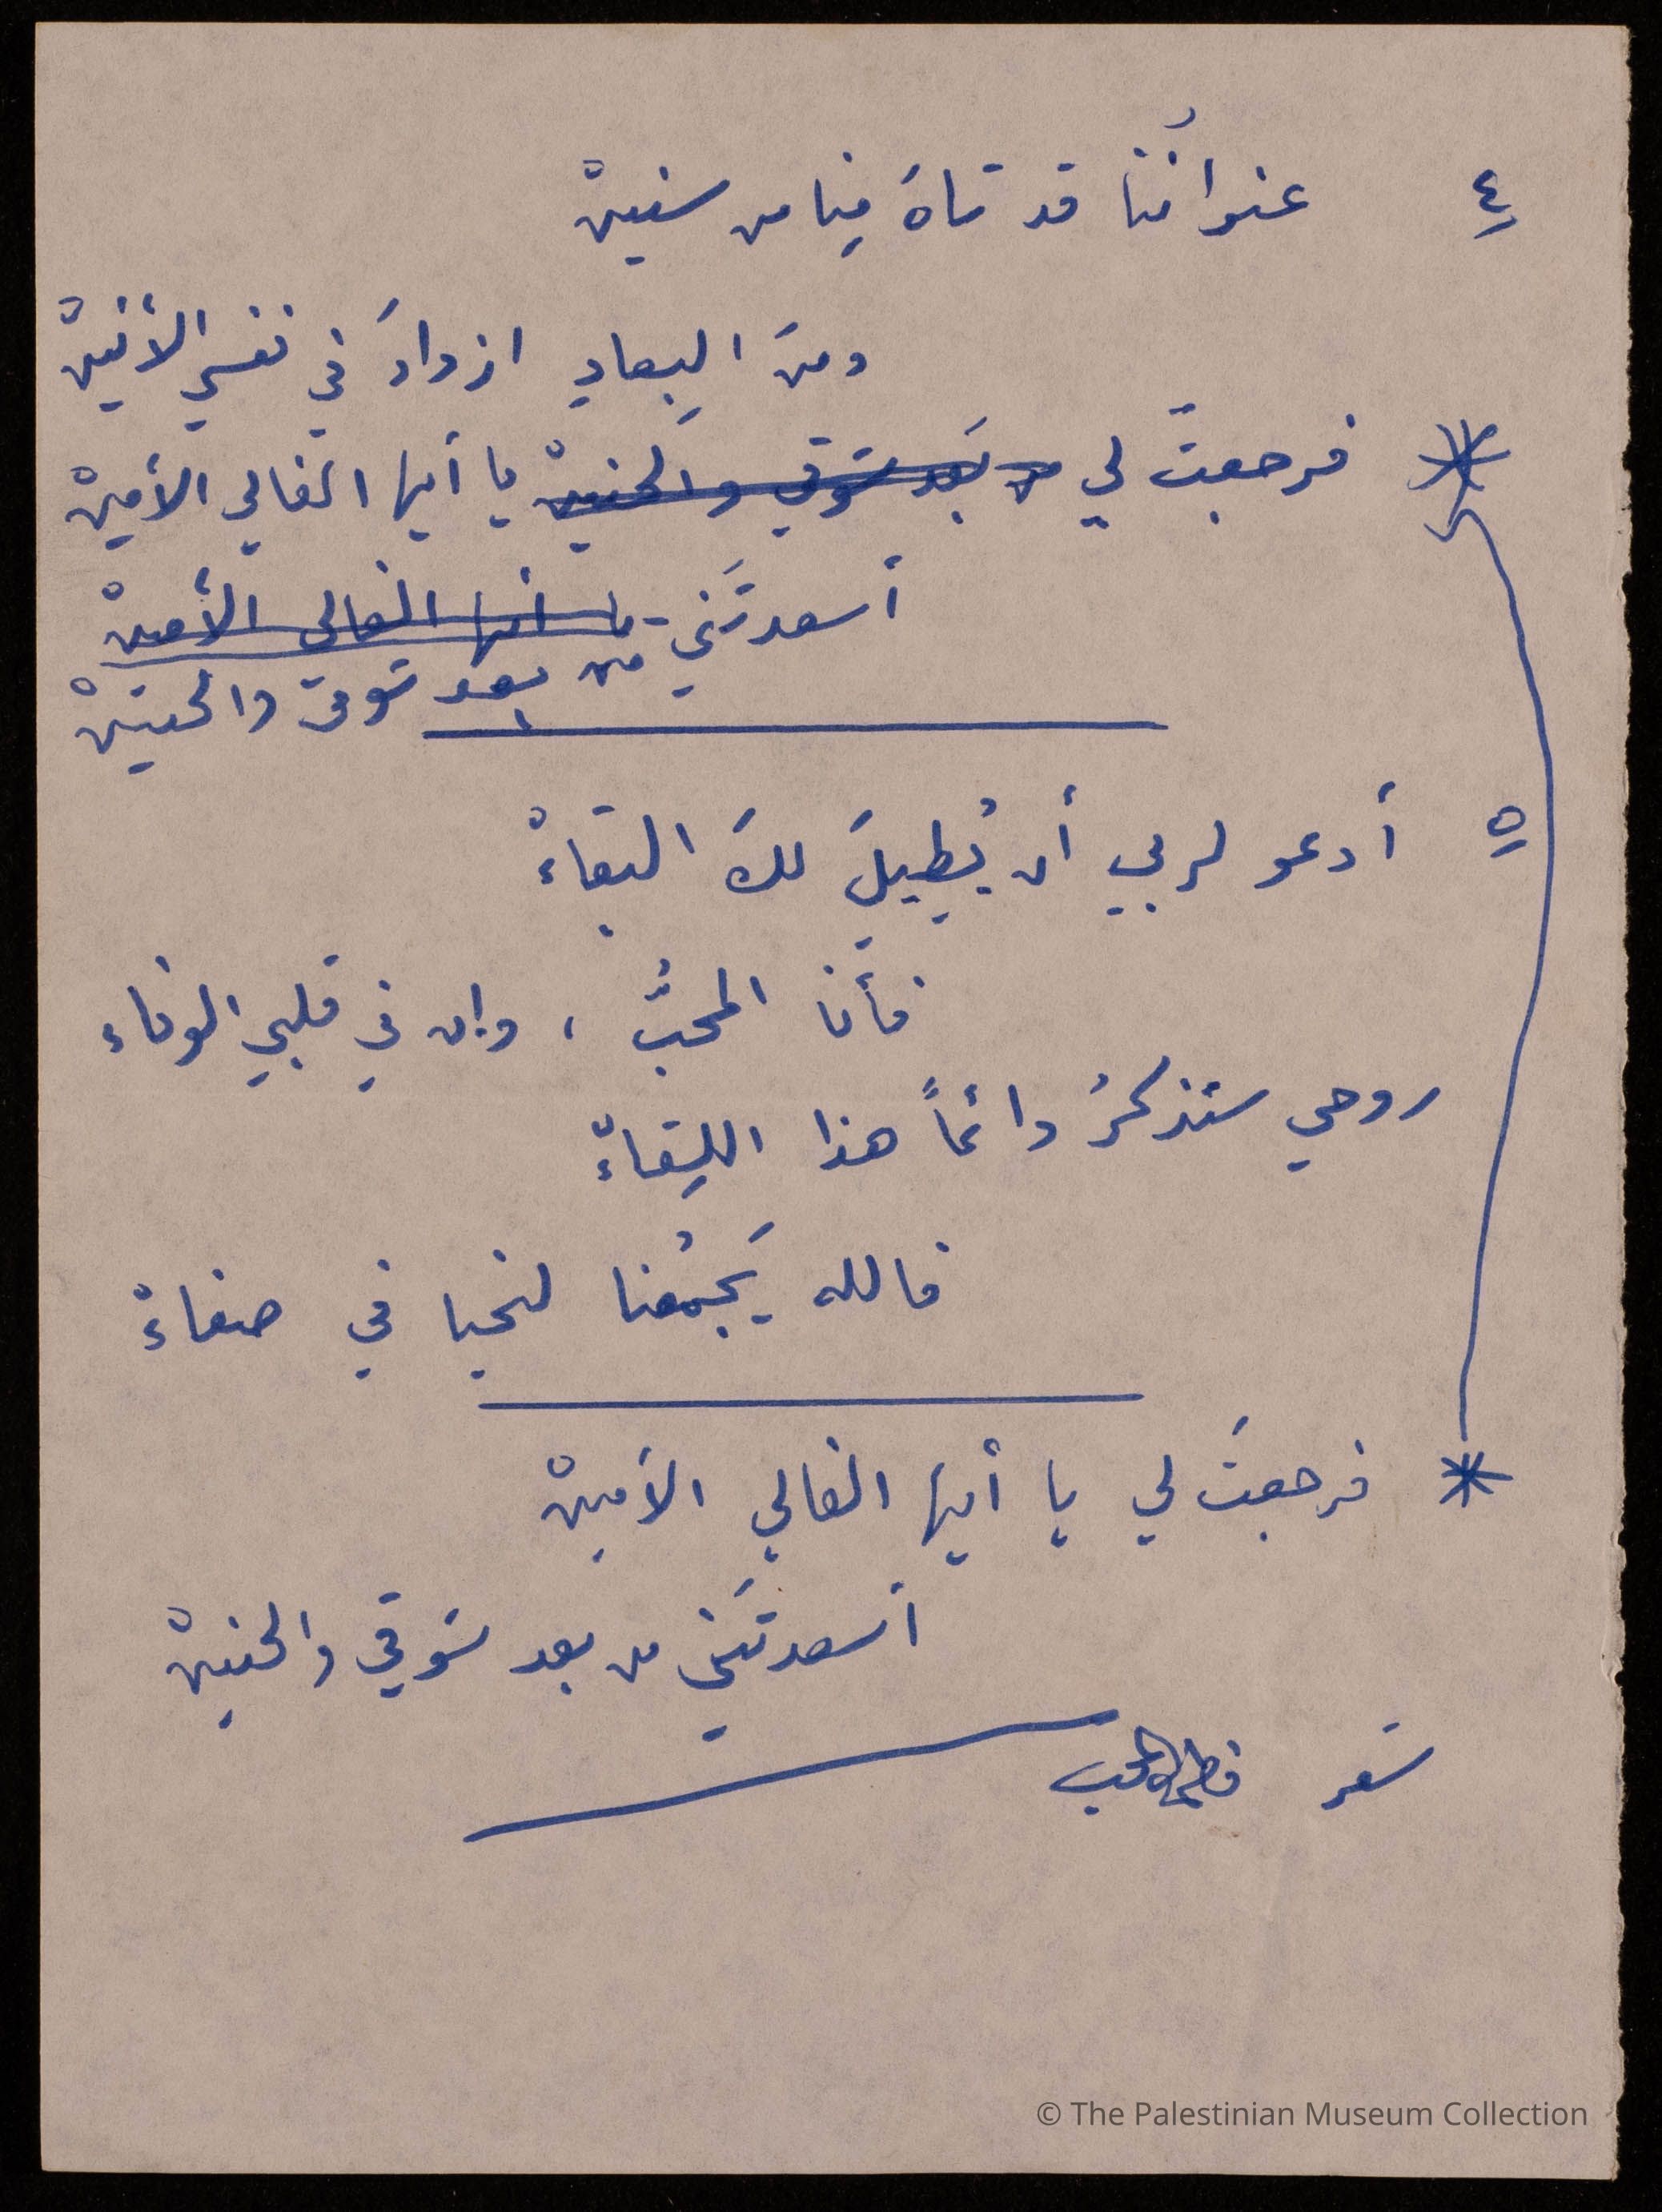 ٤ عنوانُنا قد تاهَ منا من سنينْ
ومنَ البِعادِ ازدادَ في نفسي الأنينْ
* فرجعتَ لي من بَعد شوقي والحنينْ يا أيها الغالي الأمينْ
أسعدتَني - يا أيها الغالي الأمينْ
من بعد شوقي والحنينْ
٥ أدعو لربي أن يُطيلَ لكَ البقاءْ
فأنا المحبُّ ، وإن في قلبي الوفاء
روحي ستذكرُ دائماً هذا اللِقاءْ
فالله يَجمعُنا لنحيا في صفاءْ
* فرجعتَ لي يا أيها الغالي الأمينْ
أسعدتَني من بعد شوقي والحنينْ
شعر
© The Palestinian Museum Collection